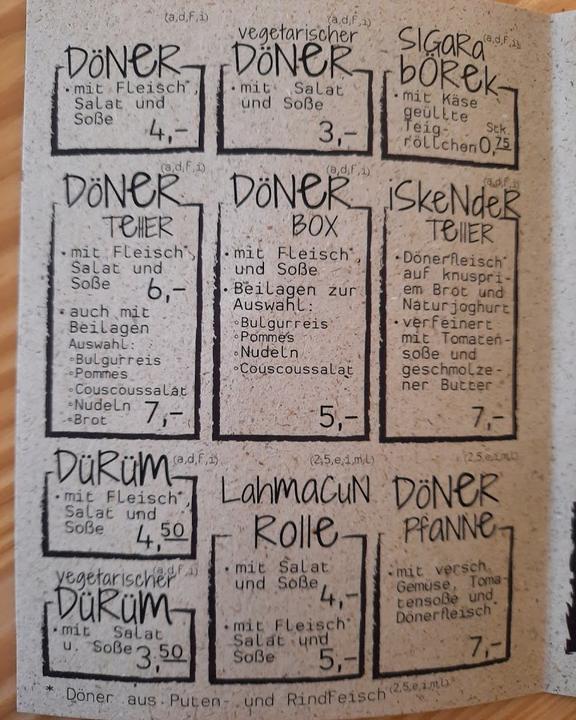 (a,d,f,i)
DÖNER
• mit Fleisch*,
Salat und
Soße
4,-
(a,d,f,i)
vegetarischer
DÖNER
• mit Salat
und Soße
3,-
SIGARA
(a,d,f,i)
BÖREK
• mit Käse
geüllte
Teig-
röllchen
Stk.
0,75
(a,d,f,i)
DÖNER
TELLER
• mit Fleisch*,
Salat und
Soße
6,-
• auch mit
Beilagen
Auswahl:
◦Bulgurreis
◦Pommes
◦Couscoussalat
◦Nudeln
◦Brot
7,-
(a,d,f,i)
DÖNER
BOX
• mit Fleisch*,
und Soße
• Beilagen zur
Auswahl:
◦Bulgurreis
◦Pommes
◦Nudeln
◦Couscoussalat
5,-
(a,d,f,i)
İSKENDER
TELLER
• Dönerfleisch*
auf knuspri-
em Brot und
Naturjoghurt
• verfeinert
mit Tomaten-
soße und
geschmolze-
ner Butter
7,-
DÜRÜM
(a,d,f,i)
• mit Fleisch*,
Salat und
Soße
4,50
(a,d,f,i)
vegetarischer
DÜRÜM
• mit Salat
u. Soße
3,50
(2,5,e,i,m,l)
LAHMACUN
ROLLE
• mit Salat
und Soße
4,-
• mit Fleisch*
Salat und
Soße
5,-
(2,5,e,i,m,l)
DÖNER
PFANNE
• mit versch.
Gemüse, Toma-
tensoße und
Dönerfleisch*
7,-
* Döner aus Puten- und RindFeisch (2,5,e,i,m,l)